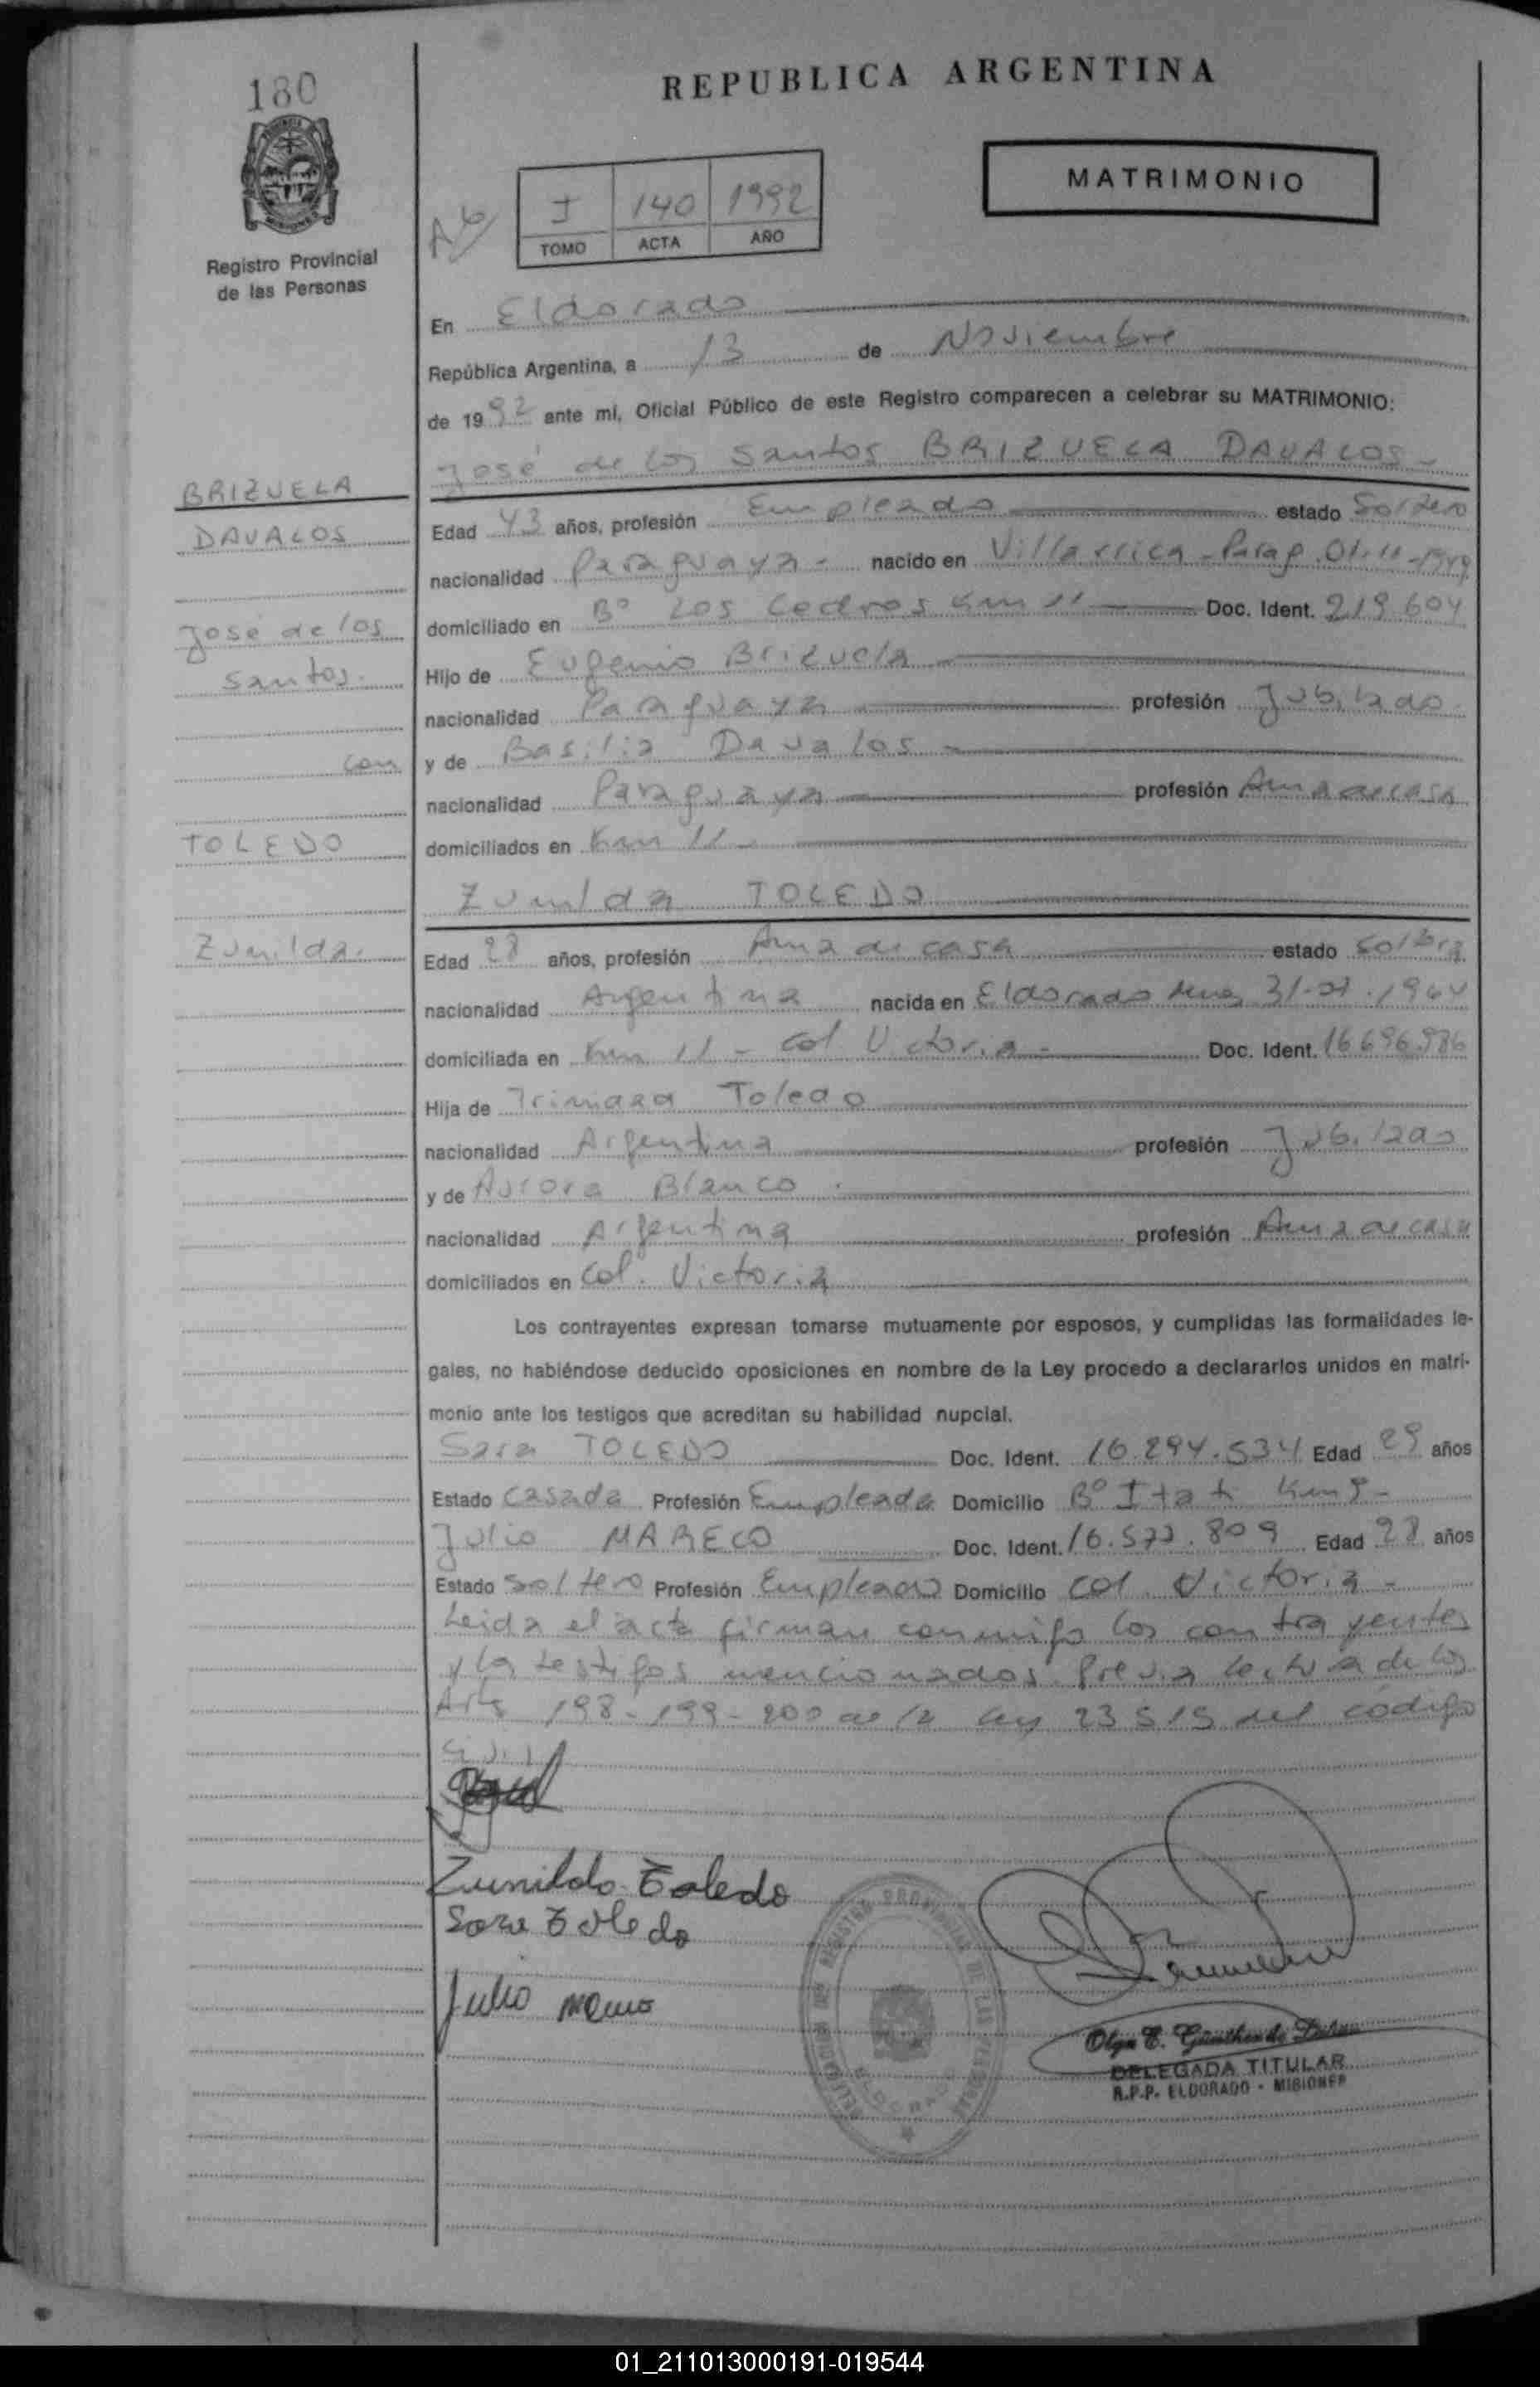 180
REPUBLICA ARGENTINA
MATRIMONIO
I 140 1992
TOMO ACTA AÑO
Registro Provincial
de las Personas
En Eldorado
República Argentina, a 13 de Noviembre
de 1992 ante mi, Oficial Público de este Registro comparecen a celebrar su MATRIMONIO:
José de los Santos BRIZUELA DAVALOS -
BRIZUELA
DAVALOS
José de los
Santos.
con
TOLEDO
Zunilda.
Edad 43 años, profesión Empleado estado Soltero
nacionalidad Paraguaya - nacido en Villarrica - Parag. 01-11-1949
domiciliado en B° Los Cedros Km 11 Doc. Ident. 219.604
Hijo de Eugenio Brizuela
nacionalidad Paraguaya profesión Jubilado.
y de Basilia Davalos -
nacionalidad Paraguaya profesión Ama de casa
domiciliados en Km 11 -
Zunilda TOLEDO
Edad 28 años, profesión Ama de casa estado Soltera
nacionalidad Argentina nacida en Eldorado Mnes 31-07-1964
domiciliada en Km 11 - Col Victoria - Doc. Ident. 16.696.986
Hija de Trinidad Toledo
nacionalidad Argentina profesión Jubilado
y de Aurora Blanco.
nacionalidad Argentina profesión Ama de casa
domiciliados en Col. Victoria
Los contrayentes expresan tomarse mutuamente por esposos, y cumplidas las formalidades le-
gales, no habiéndose deducido oposiciones en nombre de la Ley procedo a declararlos unidos en matri-
monio ante los testigos que acreditan su habilidad nupcial.
Sara TOLEDO Doc. Ident. 16.294.534 Edad 29 años
Estado Casada Profesión Empleada Domicilio B° Itati Km 9 -
Julio MARECO Doc. Ident. 16.577.809 Edad 28 años
Estado Soltero Profesión Empleado Domicilio Col. Victoria -
Leida el acta firman conmigo los contrayentes
y los testigos mencionados. Previa lectura de los
Arts 198-199-200 de la ley 23515 del código
Civil
Zunilda Toledo
Sara Toledo
Julio
DELEGADA TITULAR
R.P.P. ELDORADO - MISIONES
01_211013000191-019544